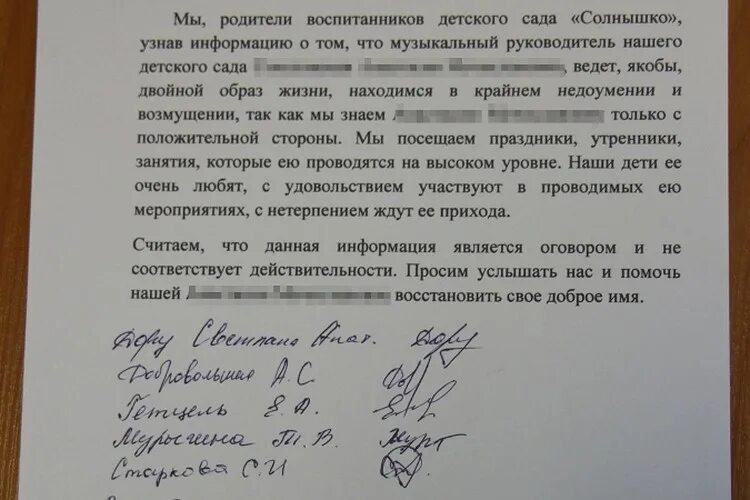 Мы, родители воспитанников детского сада «Солнышко»,
узнав информацию о том, что музыкальный руководитель нашего
детского сада , ведет, якобы,
двойной образ жизни, находимся в крайнем недоумении и
возмущении, так как мы знаем только с
положительной стороны. Мы посещаем праздники, утренники,
занятия, которые ею проводятся на высоком уровне. Наши дети ее
очень любят, с удовольствием участвуют в проводимых ею
мероприятиях, с нетерпением ждут ее прихода.
Считаем, что данная информация является оговором и не
соответствует действительности. Просим услышать нас и помочь
нашей восстановить свое доброе имя.
Дору Светлана Анат. Дору
Добровольская А.С
Гетцель Е.А.
Мурыгина Т.В. Мурт
Старкова С.И